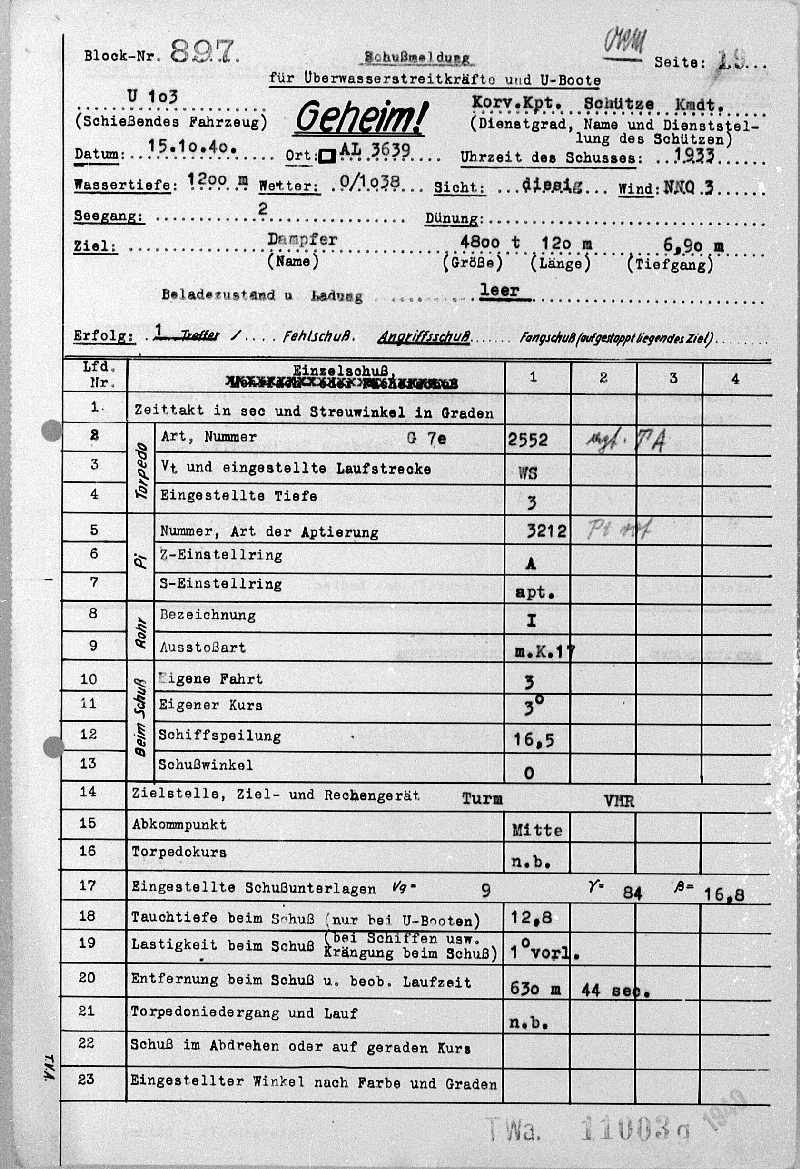 Block-Nr. 897.
Schußmeldung
Seite: 19...
für Überwasserstreitkräfte und U-Boote
U 103
(Schießendes Fahrzeug)
Geheim!
Korv.Kpt. Schütze Kmdt.
(Dienstgrad, Name und Dienststel-
lung des Schützen)
Datum: 15.10.40. Ort: AL 3639 Uhrzeit des Schusses: 1933
Wassertiefe: 1200 m Wetter: 0/1038 Sicht: diesig Wind: NNO 3
Seegang: 2 Dünung:
Ziel: Dampfer 4800 t 120 m 6,90 m
(Name) (Größe) (Länge) (Tiefgang)
Beladezustand u Ladung leer
Erfolg: 1 Treffer / Fehlschuß. Angriffsschuß Fangschuß (aufgestoppt liegendes Ziel)
Lfd. Nr. Einzelschuß, 1 2 3 4
1. Zeittakt in sec und Streuwinkel in Graden
Torpedo
2 Art, Nummer G 7e 2552 TA
3 Vt und eingestellte Laufstrecke WS
4 Eingestellte Tiefe 3
Pi
5 Nummer, Art der Aptierung 3212
6 Z-Einstellring A
7 S-Einstellring apt.
Rohr
8 Bezeichnung I
9 Ausstoßart m.K.17
Beim Schuß
10 Eigene Fahrt 3
11 Eigener Kurs 3°
12 Schiffspeilung 16,5
13 Schußwinkel 0
14 Zielstelle, Ziel- und Rechengerät Turm VHR
15 Abkommpunkt Mitte
16 Torpedokurs n.b.
17 Eingestellte Schußunterlagen Vg= 9 γ= 84 β= 16,8
18 Tauchtiefe beim Schuß (nur bei U-Booten) 12,8
19 Lastigkeit beim Schuß (bei Schiffen usw. Krängung beim Schuß) 1° vorl.
20 Entfernung beim Schuß u. beob. Laufzeit 630 m 44 sec.
21 Torpedoniedergang und Lauf n.b.
22 Schuß im Abdrehen oder auf geraden Kurs
23 Eingestellter Winkel nach Farbe und Graden
TVA.
TWa. 11003g 1940